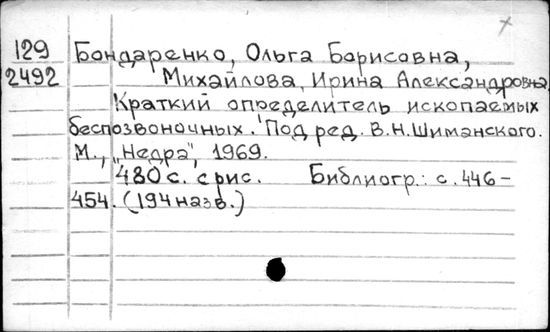 129 Бондаренко, Ольга Борисовна,
2492 Михайлова, Ирина Александровна
Краткий определитель ископаемых
беспозвоночных. Под ред. В.Н.Шиманского.
М., „Недра", 1969.
480 с. с рис. Библиогр.: с. 446-
454. (194 назв.)